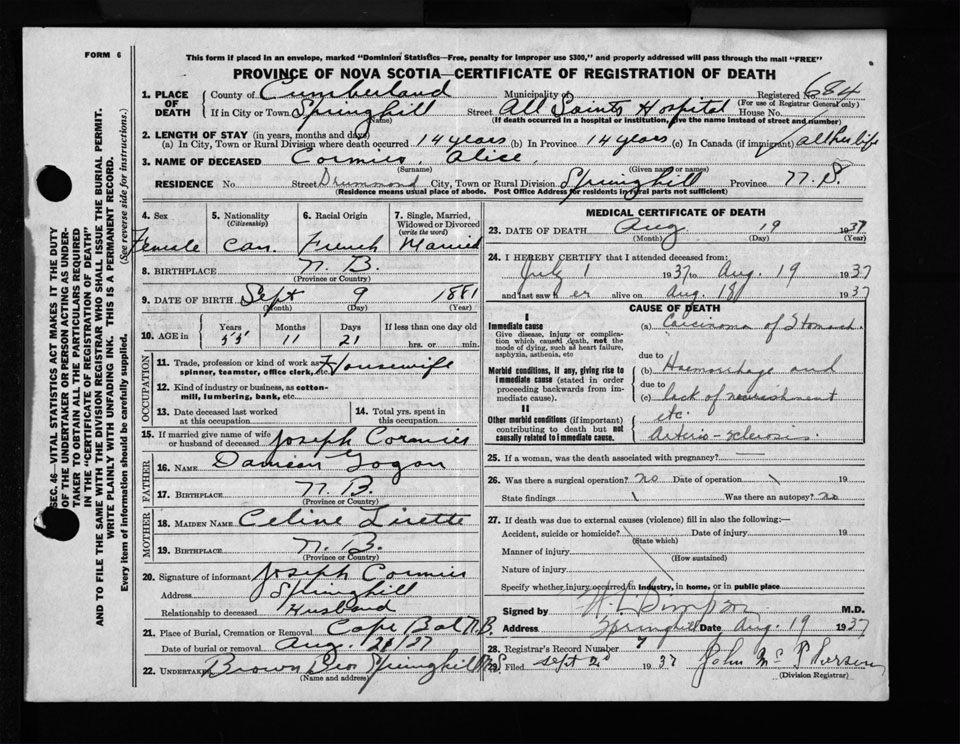 FORM 6
This form if placed in an envelope, marked "Dominion Statistics—Free, penalty for improper use $300," and properly addressed will pass through the mail "FREE"
PROVINCE OF NOVA SCOTIA—CERTIFICATE OF REGISTRATION OF DEATH
SEC. 46—VITAL STATISTICS ACT MAKES IT THE DUTY
OF THE UNDERTAKER OR PERSON ACTING AS UNDER-
TAKER TO OBTAIN ALL THE PARTICULARS REQUIRED
IN THE "CERTIFICATE OF REGISTRATION OF DEATH"
AND TO FILE THE SAME WITH THE DIVISION REGISTRAR WHO SHALL ISSUE THE BURIAL PERMIT.
WRITE PLAINLY WITH UNFADING INK. THIS IS A PERMANENT RECORD.
Every item of information should be carefully supplied. (See reverse side for instructions.)
1. PLACE OF DEATH County of Cumberland Municipality of Registered No. 684
(For use of Registrar General only)
If in City or Town Springhill Street All Saints Hospital House No.
(Name) (If death occurred in a hospital or institution, give the name instead of street and number)
2. LENGTH OF STAY (in years, months and days)
(a) In City, Town or Rural Division where death occurred 14 years (b) In Province 14 years (c) In Canada (if immigrant) all her life
3. NAME OF DECEASED Cormier, Alice
(Surname) (Given name or names)
RESIDENCE No. Street Drummond City, Town or Rural Division Springhill Province N. S.
(Residence means usual place of abode. Post Office Address for residents in rural parts not sufficient)
4. Sex Female
5. Nationality (Citizenship) Can.
6. Racial Origin French
7. Single, Married, Widowed or Divorced (write the word) Married
8. BIRTHPLACE N. B.
(Province or Country)
9. DATE OF BIRTH Sept 9 1881
(Month) (Day) (Year)
10. AGE in Years 55 Months 11 Days 21 If less than one day old hrs. or min.
OCCUPATION
11. Trade, profession or kind of work as spinner, teamster, office clerk, etc. Housewife
12. Kind of industry or business, as cotton-mill, lumbering, bank, etc.
13. Date deceased last worked at this occupation
14. Total yrs. spent in this occupation
15. If married give name of wife or husband of deceased Joseph Cormier
FATHER
16. NAME Damien Gogan
17. BIRTHPLACE N. B.
(Province or Country)
MOTHER
18. MAIDEN NAME Celine Lirette
19. BIRTHPLACE N. B.
(Province or Country)
20. Signature of informant Joseph Cormier
Address Springhill
Relationship to deceased Husband
21. Place of Burial, Cremation or Removal Cape Bal N.B.
Date of burial or removal Aug. 20/37
22. UNDERTAKER Brown Bros Springhill N.S.
(Name and address)
MEDICAL CERTIFICATE OF DEATH
23. DATE OF DEATH Aug 19 1937
(Month) (Day) (Year)
24. I HEREBY CERTIFY that I attended deceased from:
July 1 1937 to Aug. 19 1937
and last saw her alive on Aug. 18 1937
CAUSE OF DEATH
I
Immediate cause
Give disease, injury or complication which caused death, not the mode of dying, such as heart failure, asphyxia, asthenia, etc
(a) Carcinoma of Stomach
due to
Morbid conditions, if any, giving rise to immediate cause (stated in order proceeding backwards from immediate cause).
(b) Haemorrhage and
due to
(c) lack of nourishment
etc.
II
Other morbid conditions (if important) contributing to death but not causally related to immediate cause.
Arterio-sclerosis.
25. If a woman, was the death associated with pregnancy? —
26. Was there a surgical operation? no Date of operation 19
State findings Was there an autopsy? no
27. If death was due to external causes (violence) fill in also the following:—
Accident, suicide or homicide? Date of injury 19
(State which)
Manner of injury
(How sustained)
Nature of injury
Specify whether injury occurred in industry, in home, or in public place
Signed by M.D.
Address Springhill Date Aug. 19 1937
28. Registrar's Record Number 7
29. Filed Sept 2d 1937 John McPherson
(Division Registrar)